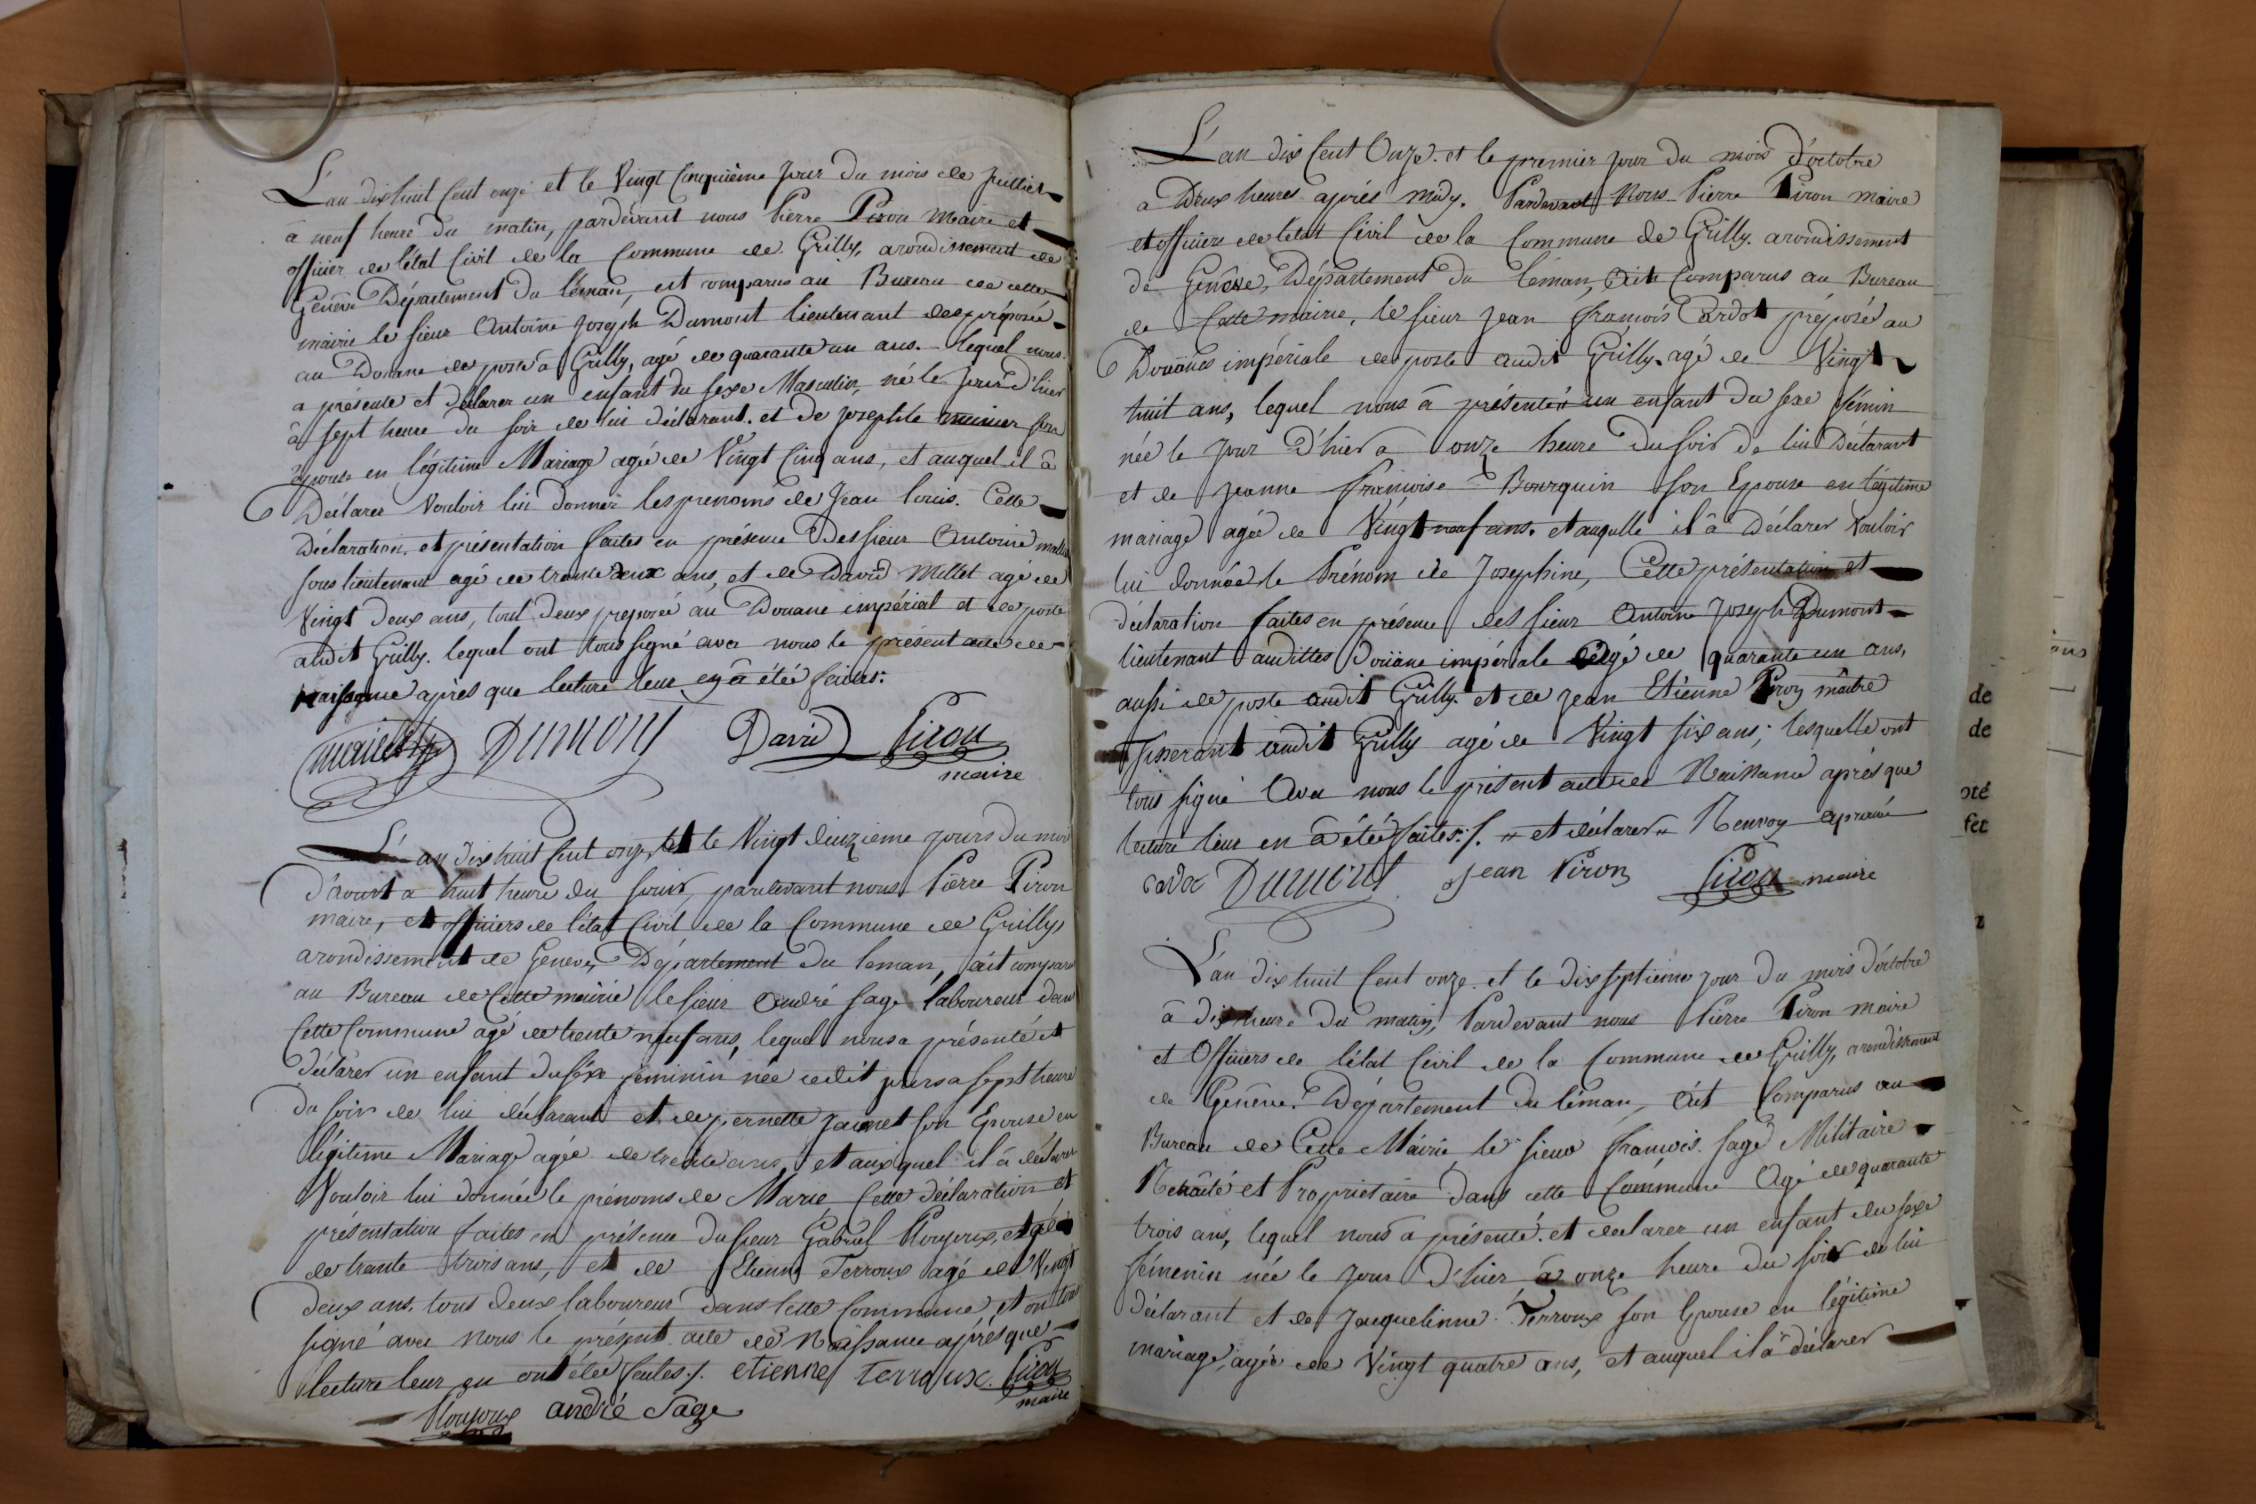 L'an dix huit Cent onze et le Vingt Cinquième jour du mois de Juillet
à neuf heure du matin, pardevant nous Pierre Piron Maire et
officier de l'état Civil de la Commune de Grilly, arondissement de
Genêve Département du léman, est comparus au Bureau de cette
mairie le sieur Antoine Joseph Dumont lieutenant des préposé
au Douane de poste à Grilly, agé de quarante un ans. lequel nous
a présenté et déclarer un enfant du sexe Masculin, né le jour d'hier
à sept heure du soir de lui déclarant. et de Josephte munier son
Epouse en légitime Mariage agée de Vingt Cinq ans, et auquel il à
Déclarer Vouloir lui donner les prenoms de Jean louis. Cette
Déclaration, et présentation faites en présence des sieur Antoine
sous lieutenant agé de trente deux ans, et de David Millet agé de
Vingt deux ans, tout deux preposé au Douane impérial et de poste
audit Grilly. lequel ont tous signé avec nous le présent acte de
naissance après que lecture leur en â étée faites.
Dumont David Piron
maire
L'an dix huit Cent onze, et le Vingt deuxieme jours du mois
d'aoust a huit heure du soir, pardevant nous Pierre Piron
maire, et officiers de l'état Civil de la Commune de Grilly,
arondissement de Geneve, Département du leman, ait comparu
au Bureau de Cette mairie le sieur André Sage laboureur dans
Cette Commune agé de trente neuf ans, lequel nous a présenté et
déclarer un enfant du séxe feminin née cedit jours a sept heure
du soir de lui déclarant et de pernette Jaunet son Epouse en
légitime Mariage agée de trente ans, et auxquel il â déclarer
Vouloir lui donnée le prénoms de Marie, Cette déclaration et
présentation faites en présence du sieur Gabriel Roujoux, agé
de trante trois ans, et de Etienne Terroux agé de Vingt
deux ans. tous deux laboureur dans cette Commune, et ont tous
signé avec nous le présent acte de Naissance après que
lecture leur en ont étée faites./. etienne terroux. Piron
maire
Roujoux andré Sage
L'an dix Cent Onze. et le premier jour du mois d'octobre
a Deux heures après midy. Pardevant Nous Pierre Piron maire
et officiers de l'état Civil de la Commune de Grilly. arondissement
de Genêve, Département du léman, Ait Comparus au Bureau
de Cette mairie, le sieur Jean françois Cardot préposé au
Douänes impériale de poste audit Grilly. agé de Vingt
huit ans, lequel nous à présentée un enfant du sexe féminin
née le jour D'hier a onze heure du soir de lui Déclarant
et de Jeanne francoise Bourquin son Epouse en légitime
mariage agée de Vingt neuf ans. et auquelle il â déclarer Vouloir
lui donnée le Prénom de Josephine, Cette présentation et
déclaration faites en présence des sieur Antoine Joseph Dumont
lieutenant audittes Doüane impériale agé de quarante un ans,
aussi de poste audit Grilly. et de Jean Etienne Piron mâitre
Tisserant audit Grilly agé de Vingt six ans; lesquelle ont
tous signé Avec nous le présent acte de Naissance après que
lecture leur en â étée faites./. " et déclarer " Renvoy aprouvé
Dumont Jean Piron Piron maire
L'an dix huit Cent onze. et le dix septieme jour du mois d'octobre
â dix heure du matin, Pardevant nous Pierre Piron maire
et Officiers de l'état Civil de la Commune de Grilly, arondissement
de Genêve. Département du léman, Ait Comparus au
Bureau de Cette Mairie le sieur françois Sage Militaire
Retraité et Propriétaire dans cette Commune Agé de quarante
trois ans, lequel nous a présenté et déclarer un enfant du sexe
féminin née le jour d'hier à onze heure du soir de lui
déclarant et de Jaquelinne Terroux son Epouse en légitime
mariage, agée de Vingt quatre ans, et auquel il â déclarer